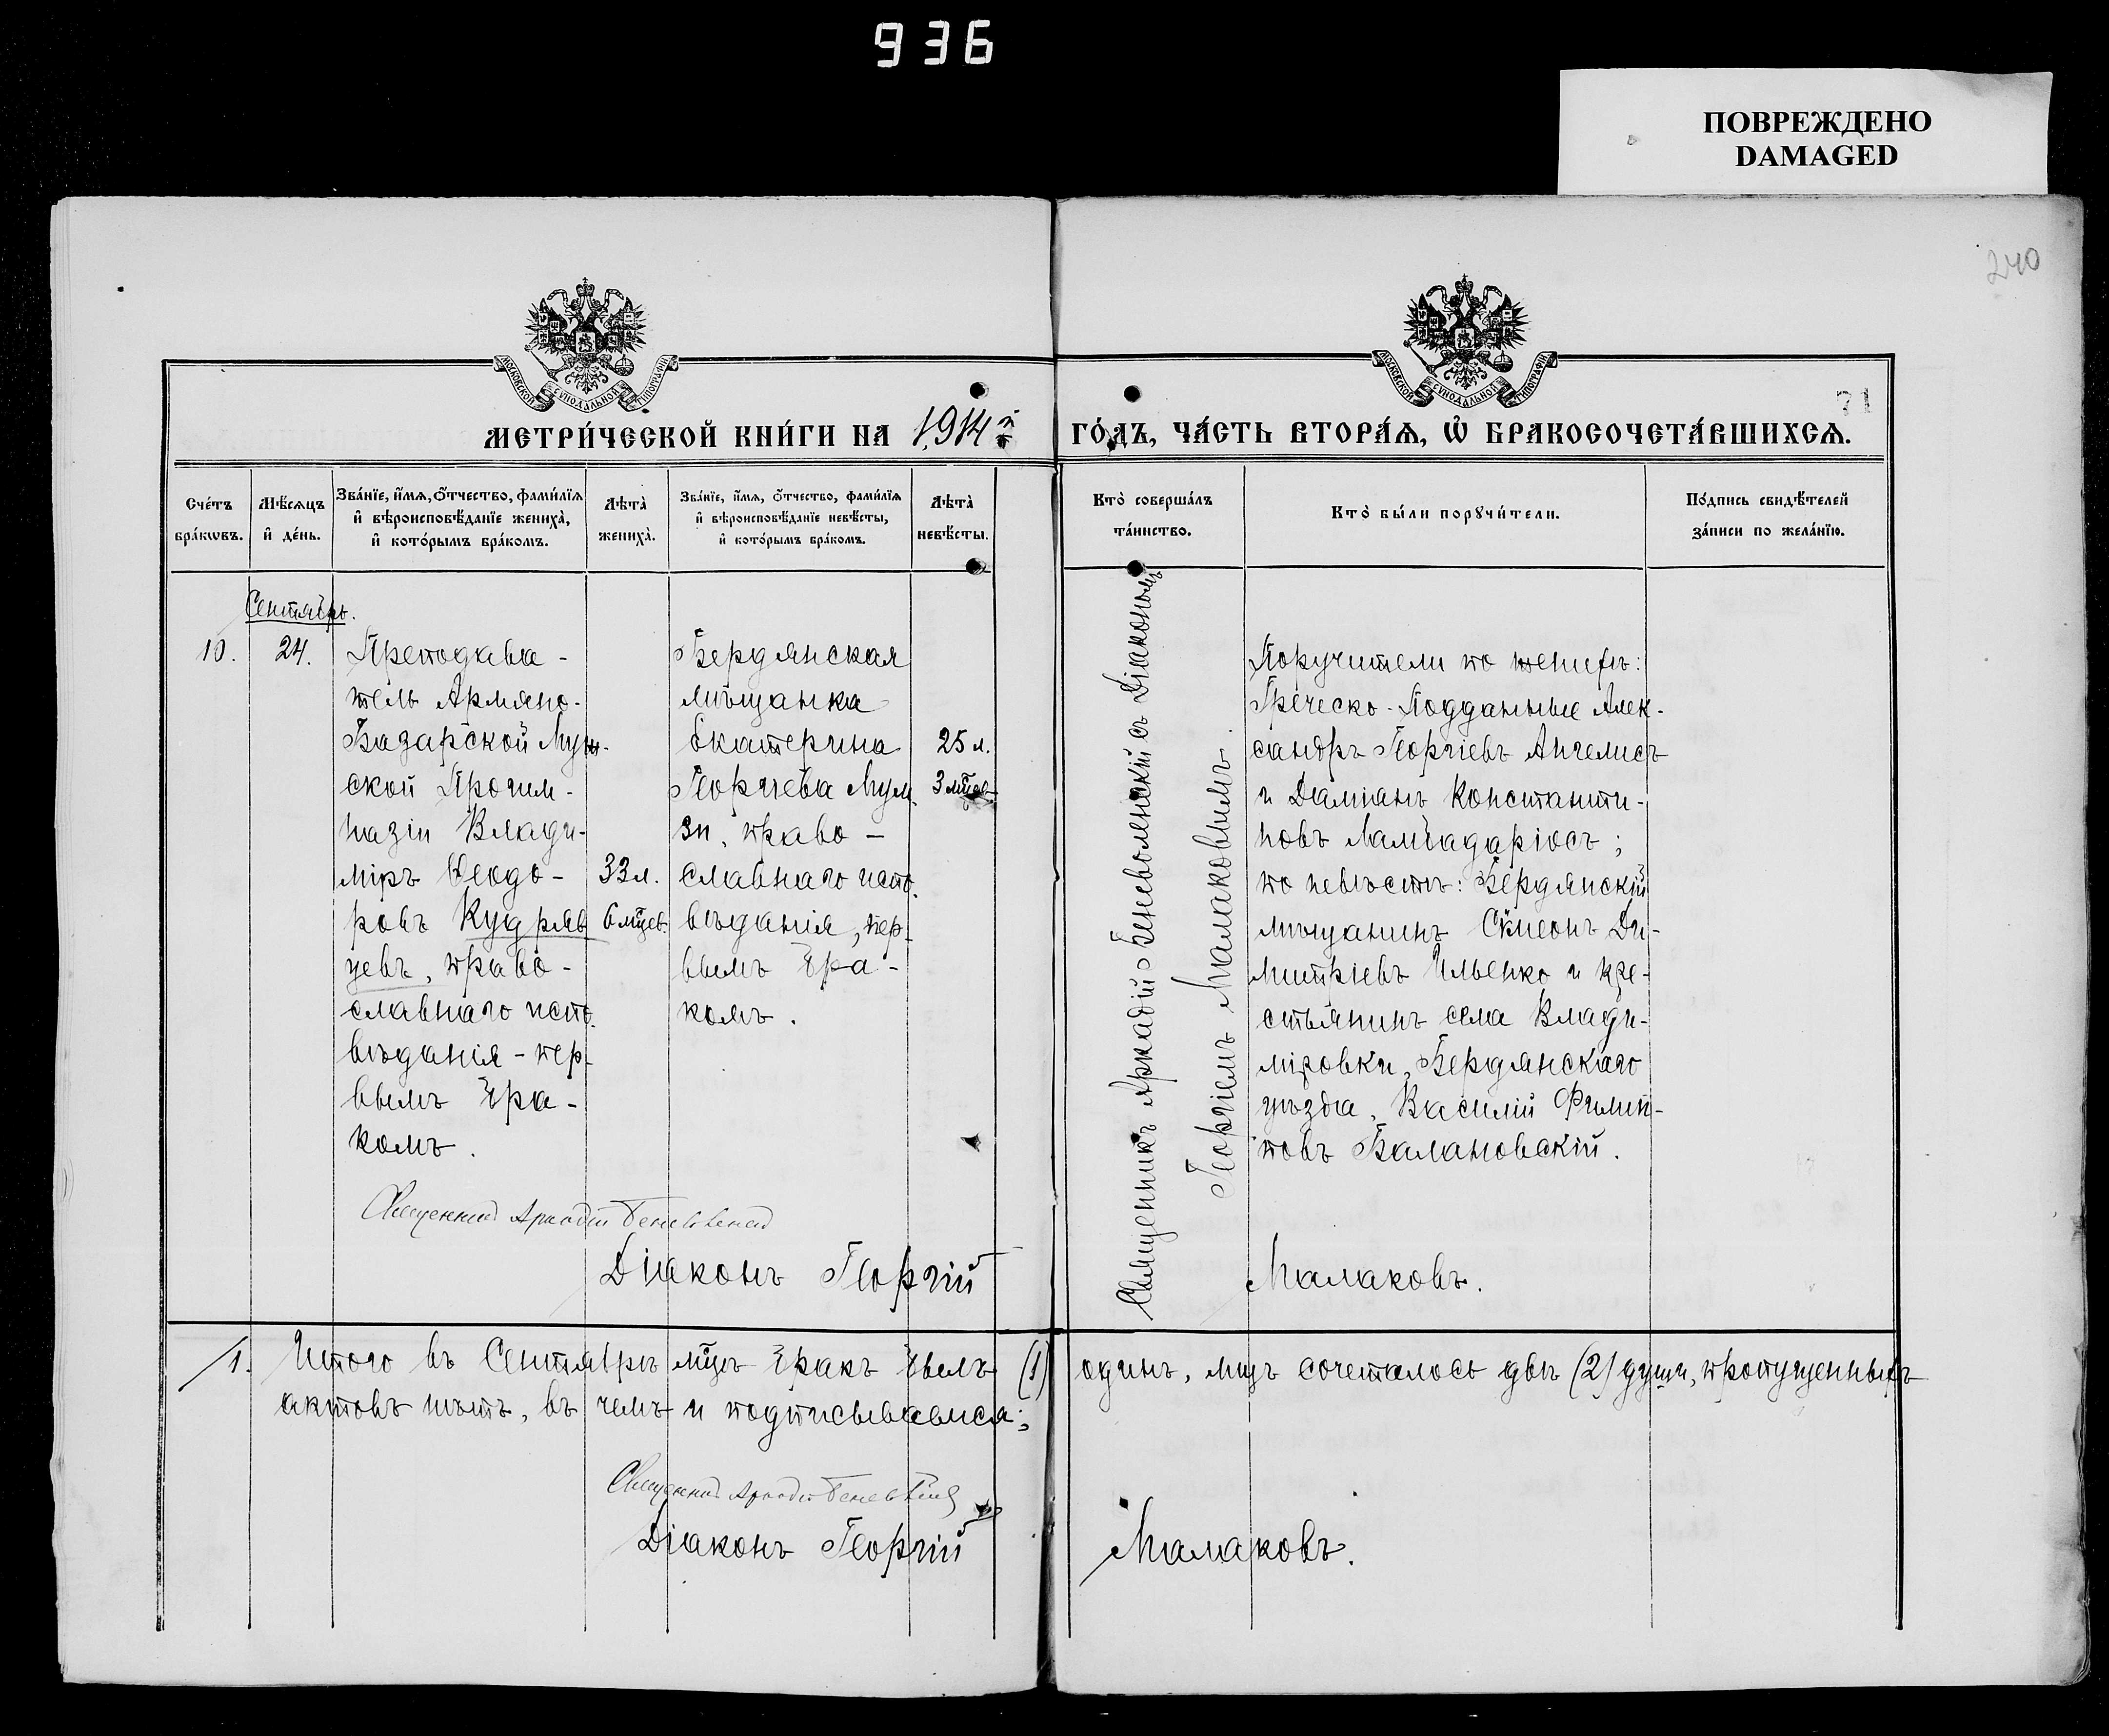 936
ПОВРЕЖДЕНО
DAMAGED
240
МОСКОВСКОЙ СѴНОДАЛЬНОЙ ТИПОГРАФІИ
МОСКОВСКОЙ СѴНОДАЛЬНОЙ ТИПОГРАФІИ
71
МЕТРИ́ЧЕСКОЙ КНИ́ГИ НА 1914й
ГО́ДЪ, ЧА́СТЬ ВТОРА́Ѧ, Ѽ БРАКОСОЧЕТА́ВШИХСѦ.
Сче́тъ
бра́кѡвъ.
Мѣ́сѧцъ
и҆ де́нь.
Зва́нїе, и҆́мѧ, ѻ҆́тчество, фами́лїѧ
и҆ вѣроисповѣ́данїе жениха̀,
и҆ кото́рымъ бра́комъ.
Лѣта̀
жениха̀.
Зва́нїе, и҆́мѧ, ѻ҆́тчество, фами́лїѧ
и҆ вѣроисповѣ́данїе невѣ́сты,
и҆ кото́рымъ бра́комъ.
Лѣта̀
невѣ́сты.
Кто̀ соверша́лъ
та́инство.
Кто̀ бы́ли порꙋчи́тели.
По́дпись свидѣ́телей
за́писи по жела́нїю.
Сентябрь.
10.
24.
Преподава-
тель Армяно-
Базарской Муж-
ской Прогим-
назіи Влади-
міръ Ѳеодо-
ровъ Кудряв-
цевъ, право-
славнаго испо-
вѣданія - пер-
вымъ бра-
комъ.
33 л.
6 мцев.
Бердянская
мѣщанка
Екатерина
Георгіева Мум-
зи, право-
славнаго испо-
вѣданія, пер-
вымъ бра-
комъ.
25 л.
3 мцев.
Священникъ Аркадій Беневоленскій съ Діакономъ
Георгіемъ Малаковымъ.
Поручители по женихѣ:
Греческо-Подданные Алек-
сандръ Георгіевъ Ангелисъ
и Даміанъ Константи-
новъ Ламбадаріосъ;
по невѣстѣ: Бердянскій
мѣщанинъ Сѵмеонъ Ди-
митріевъ Ильенко и кре-
стьянинъ села Влади-
міровки, Бердянскаго
уѣзда, Василій Филип-
повъ Балановскій.
Священникъ Аркадій Беневоленскій
Діаконъ Георгій Малаковъ.
1. Итого въ Сентябрѣ мцѣ бракъ былъ (1) одинъ, лицъ сочеталось двѣ (2) души, пропущенныхъ
актовъ нѣтъ, въ чемъ и подписываемся:
Священникъ Аркадій Беневоленскій
Діаконъ Георгій Малаковъ.